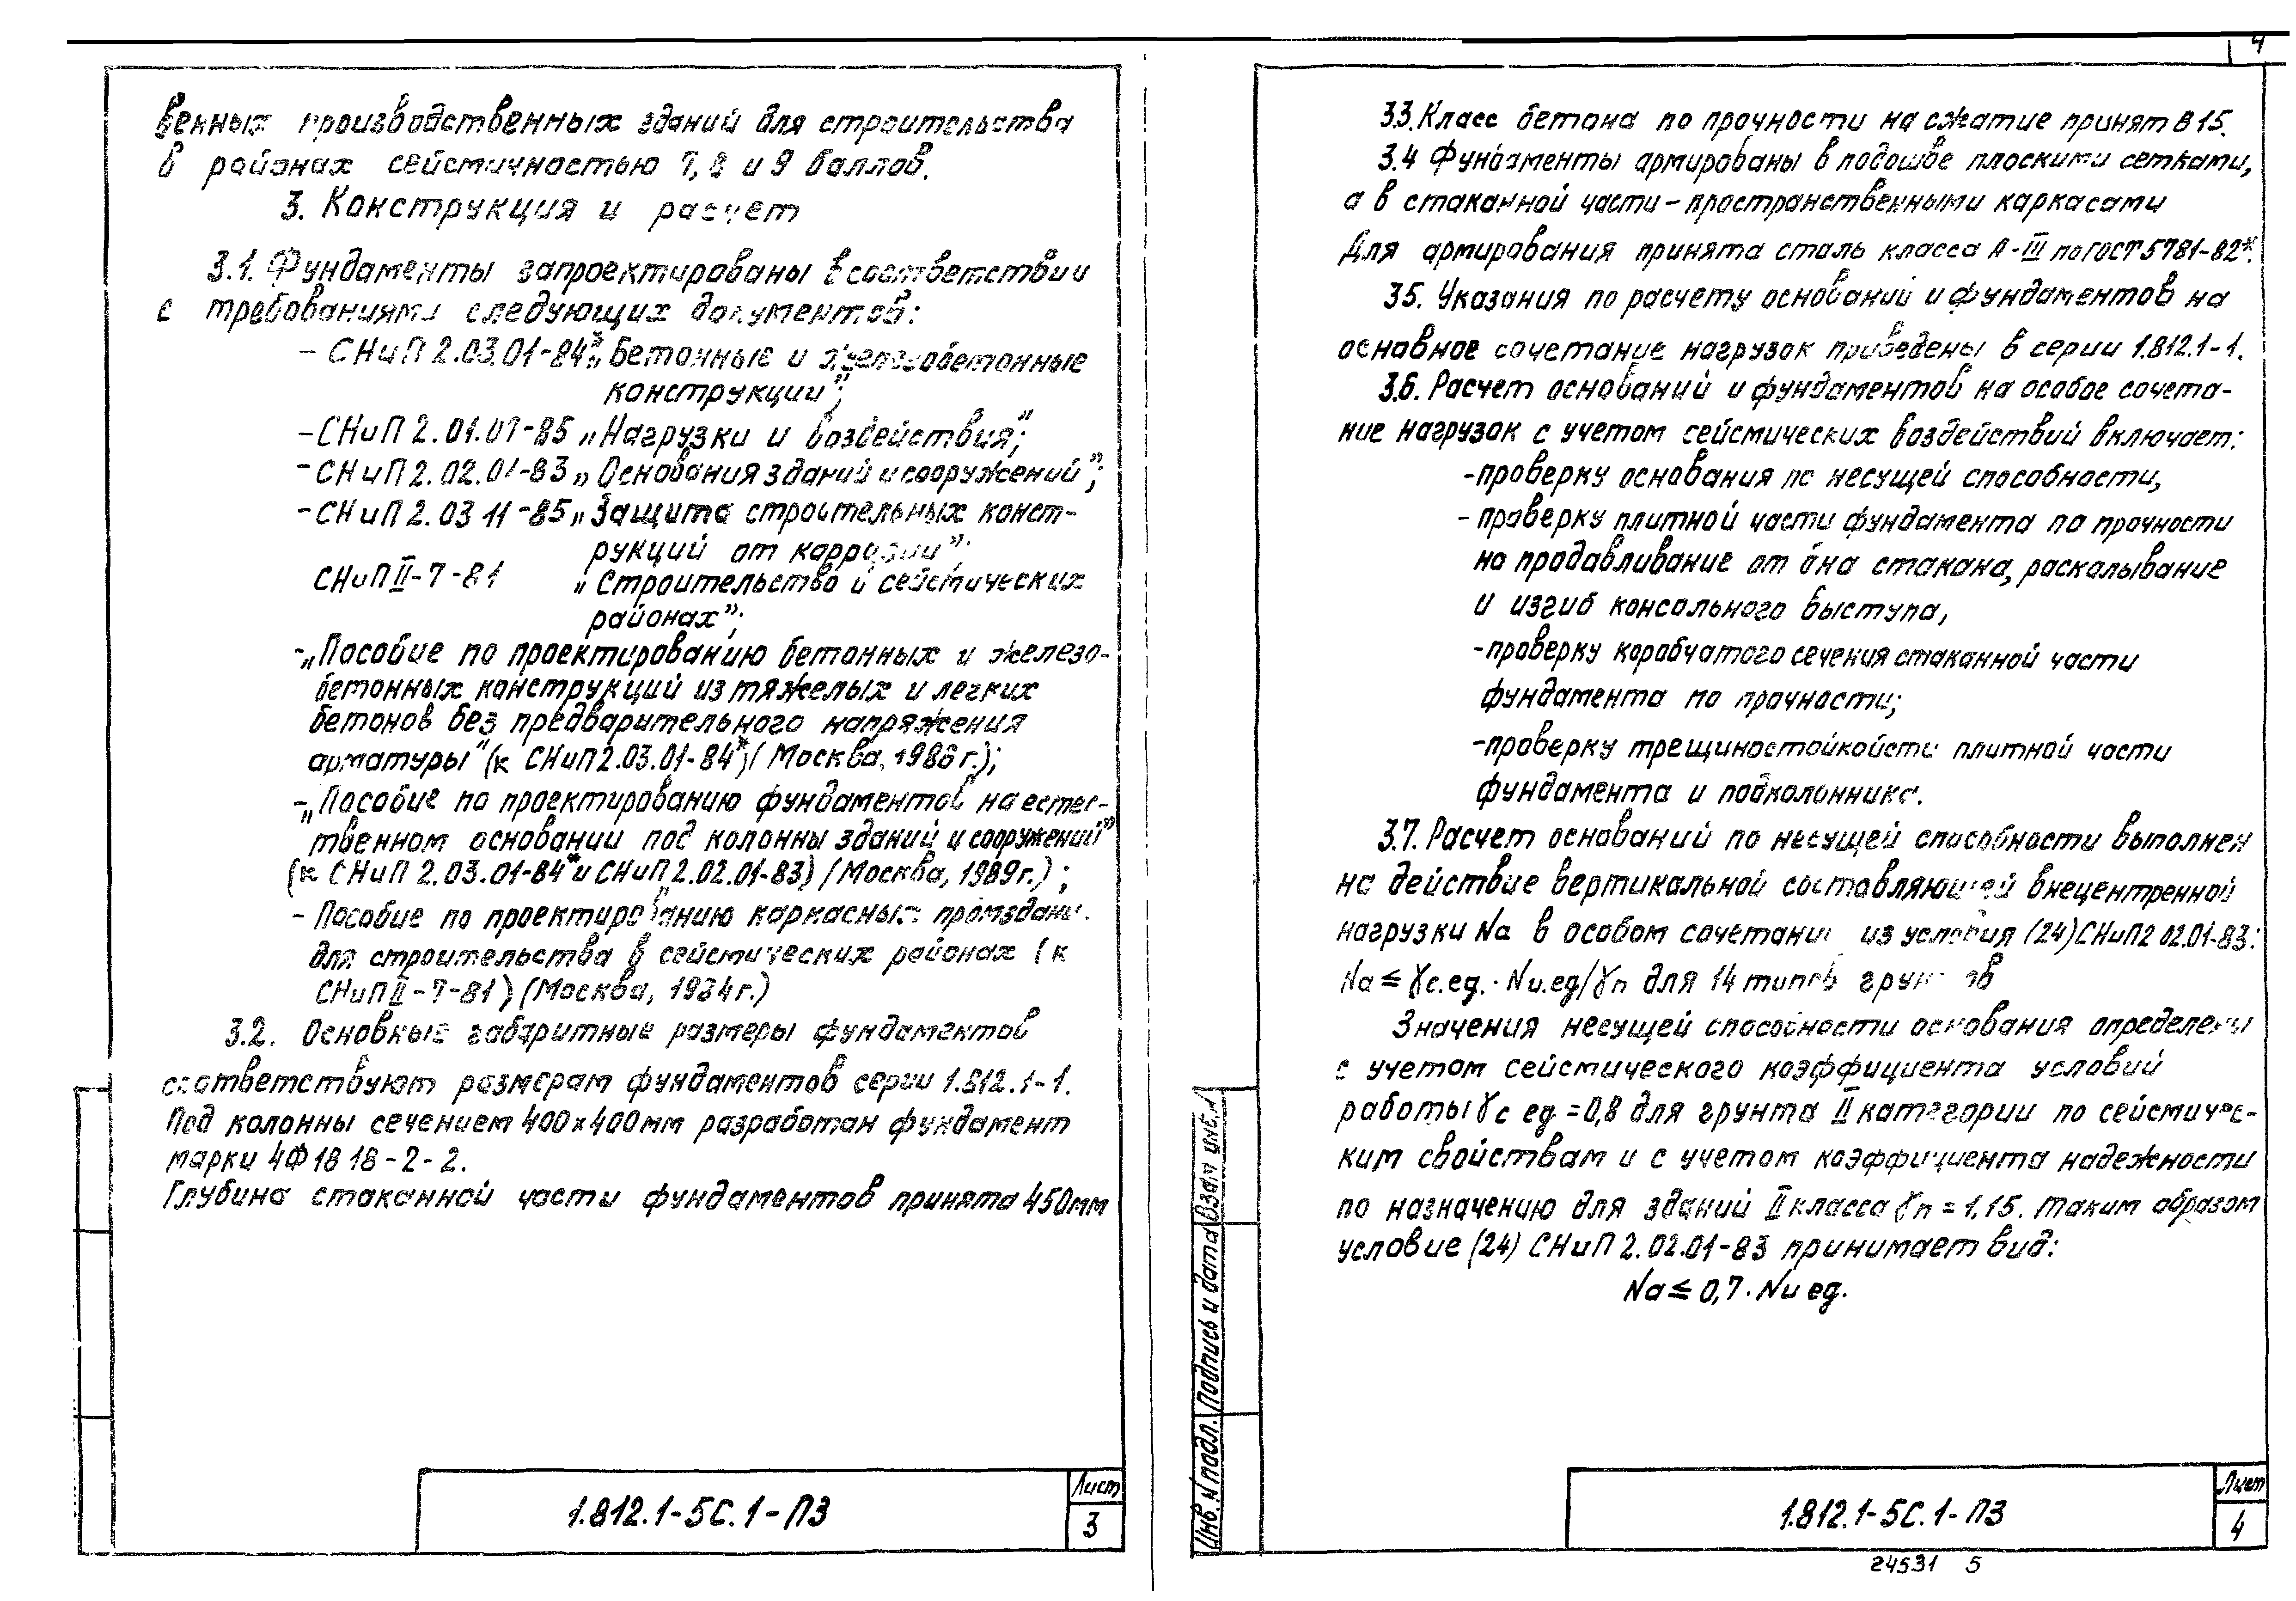 венных производственных зданий для строительства
в районах сейсмичностью 7, 8 и 9 баллов.
3. Конструкция и расчет
3.1. Фундаменты запроектированы в соответствии
с требованиями следующих документов:
- СНиП 2.03.01-84* „Бетонные и железобетонные
конструкции";
- СНиП 2.01.07-85 „Нагрузки и воздействия";
- СНиП 2.02.01-83 „Основания зданий и сооружений";
- СНиП 2.03 11-85 „Защита строительных конст-
рукций от коррозии";
СНиП II-7-81 „Строительство в сейсмических
районах";
- „Пособие по проектированию бетонных и железо-
бетонных конструкций из тяжелых и легких
бетонов без предварительного напряжения
арматуры" (к СНиП 2.03.01-84*) (Москва, 1986 г.);
- „Пособие по проектированию фундаментов на естес-
твенном основании под колонны зданий и сооружений"
(к СНиП 2.03.01-84* и СНиП 2.02.01-83) (Москва, 1989 г.);
- Пособие по проектированию каркасных промздани.
для строительства в сейсмических районах (к
СНиП II-7-81) (Москва, 1984 г.)
3.2. Основные габаритные размеры фундаментов
соответствуют размерам фундаментов серии 1.812.1-1.
Под колонны сечением 400х400мм разработан фундамент
марки 4Ф 18 18-2-2.
Глубина стаканной части фундаментов принята 450мм
1.812.1-5С.1-ПЗ
Лист
3
4
3.3. Класс бетона по прочности на сжатие принят В 15.
3.4 Фундаменты армированы в подошве плоскими сетками,
а в стаканной части - пространственными каркасами
Для армирования принята сталь класса А-III по ГОСТ 5781-82*.
3.5. Указания по расчету оснований и фундаментов на
основное сочетание нагрузок приведены в серии 1.812.1-1.
3.6. Расчет оснований и фундаментов на особое сочета-
ние нагрузок с учетом сейсмических воздействий включает:
-проверку основания по несущей способности,
- проверку плитной части фундамента по прочности
на продавливание от дна стакана, раскалывание
и изгиб консольного выступа,
-проверку коробчатого сечения стаканной части
фундамента по прочности;
-проверку трещиностойкойсти плитной части
фундамента и подколонника.
3.7. Расчет оснований по несущей способности выполнен
на действие вертикальной составляющей внецентренной
нагрузки Na в особом сочетании из условия (24) СНиП 2 02.01-83:
Na ≤ γc.eg. · Nu.eg/γn для 14 типов грунтов
Значения несущей способности основания определены
с учетом сейсмического коэффициента условий
работы γc eg = 0,8 для грунта II категории по сейсмичес-
ким свойствам и с учетом коэффициента надежности
по назначению для зданий II класса γn = 1,15. Таким образом
условие (24) СНиП 2.02.01-83 принимает вид:
Na ≤ 0,7 · Nu eg.
Инв. N подл. Подпись и дата Взам инв.N
1.812.1-5С.1-ПЗ
Лист
4
24531 5